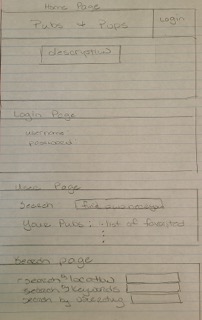 Home Page
Pubs + Pups
Login
description
Login Page
username
password
User Page
Search
Your Pubs : - list of favorited
Search page
Search by location
Search by keywords
Search by